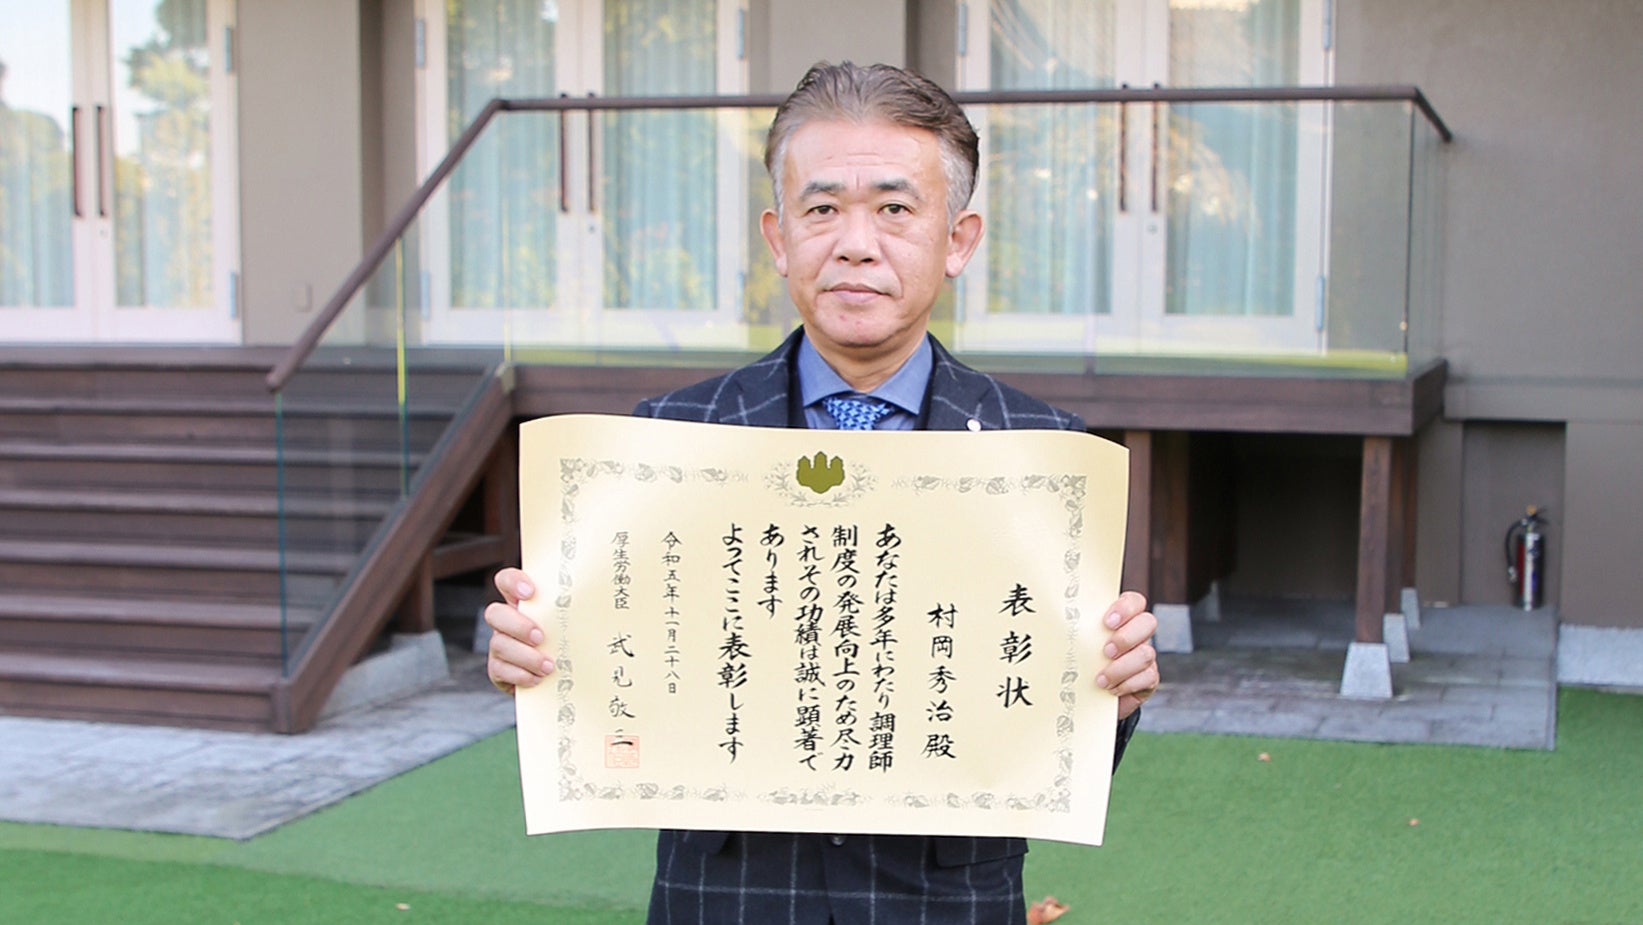 表彰状
村岡秀治殿
あなたは多年にわたり調理師
制度の発展向上のため尽力
されその功績は誠に顕著で
あります
よってここに表彰します
令和五年十一月二十八日
厚生労働大臣 武見敬三